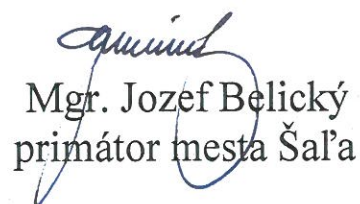 Mgr. Jozef Belický
primátor mesta Šaľa